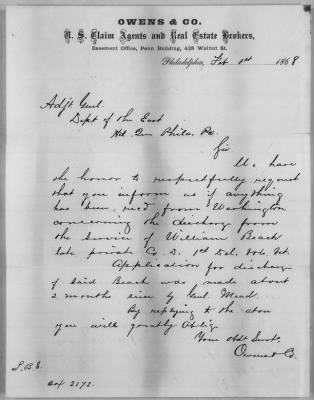 OWENS & CO.
U. S. Claim Agents and Real Estate Brokers,
Basement Office, Penn Building, 428 Walnut St.
Philadelphia, Feb 1st 1868
Adjt Genl.
Dept of the East
Hd. Qrs Phila. Pa
Sir
We have
the honor to respectfully request
that you inform us if anything
has been recd from Washington
concerning the discharg from
the service of William Beach
late private Co. D. 1st Del. Vols. Vet.
Application for discharge
of said Beach was made about
2 months since by Genl. Mead.
By replying to the
you will greatly Oblig
Your obdt Servt,
Owens & Co.
L.B.E.
Box 2172.